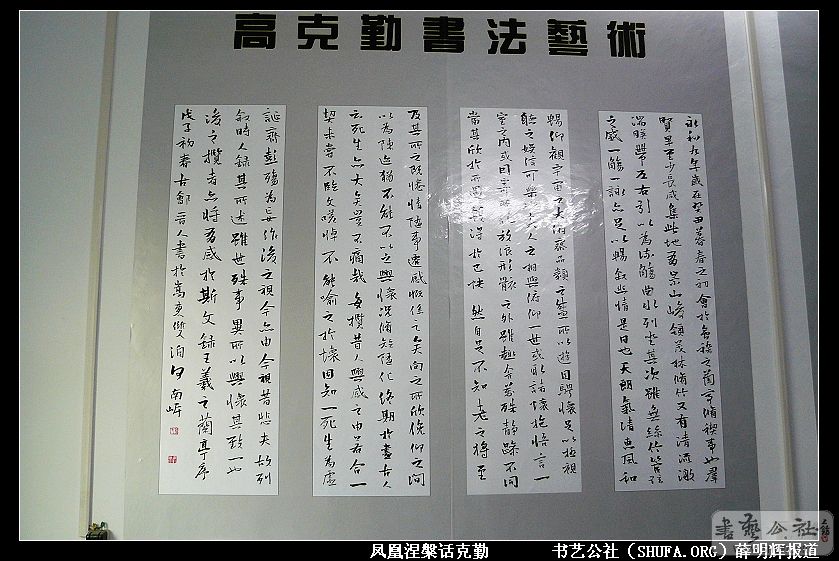 高克勤書法藝術
永和九年歲在癸丑暮春之初會於會稽之蘭亭脩禊事也羣
賢畢至少長咸集此地有崇山峻領茂林脩竹又有清流激
湍映帶左右引以為流觴曲水列坐其次雖無絲竹管弦
之盛一觴一詠亦足以暢敘幽情是日也天朗氣清惠風和
暢仰觀宇宙之大俯察品類之盛所以遊目騁懷足以極視
聽之娛信可樂也夫人之相與俯仰一世或取諸懷抱悟言一
室之內或因寄所託放浪形骸之外雖趣舍萬殊靜躁不同
當其欣於所遇暫得於己快然自足不知老之將至
及其所之既惓情隨事遷感慨係之矣向之所欣俛仰之間
以為陳迹猶不能不以之興懷況脩短隨化終期於盡古人
云死生亦大矣豈不痛哉每攬昔人興感之由若合一
契未嘗不臨文嗟悼不能喻之於懷固知一死生為虛
誕齊彭殤為妄作後之視今亦由今視昔悲夫故列
敘時人錄其所述雖世殊事異所以興懷其致一也
後之攬者亦將有感於斯文錄王羲之蘭亭序
戊子初春古人書於雙洎河南岸
書藝公社
凤凰涅槃话克勤
书艺公社（SHUFA.ORG）薛明辉报道